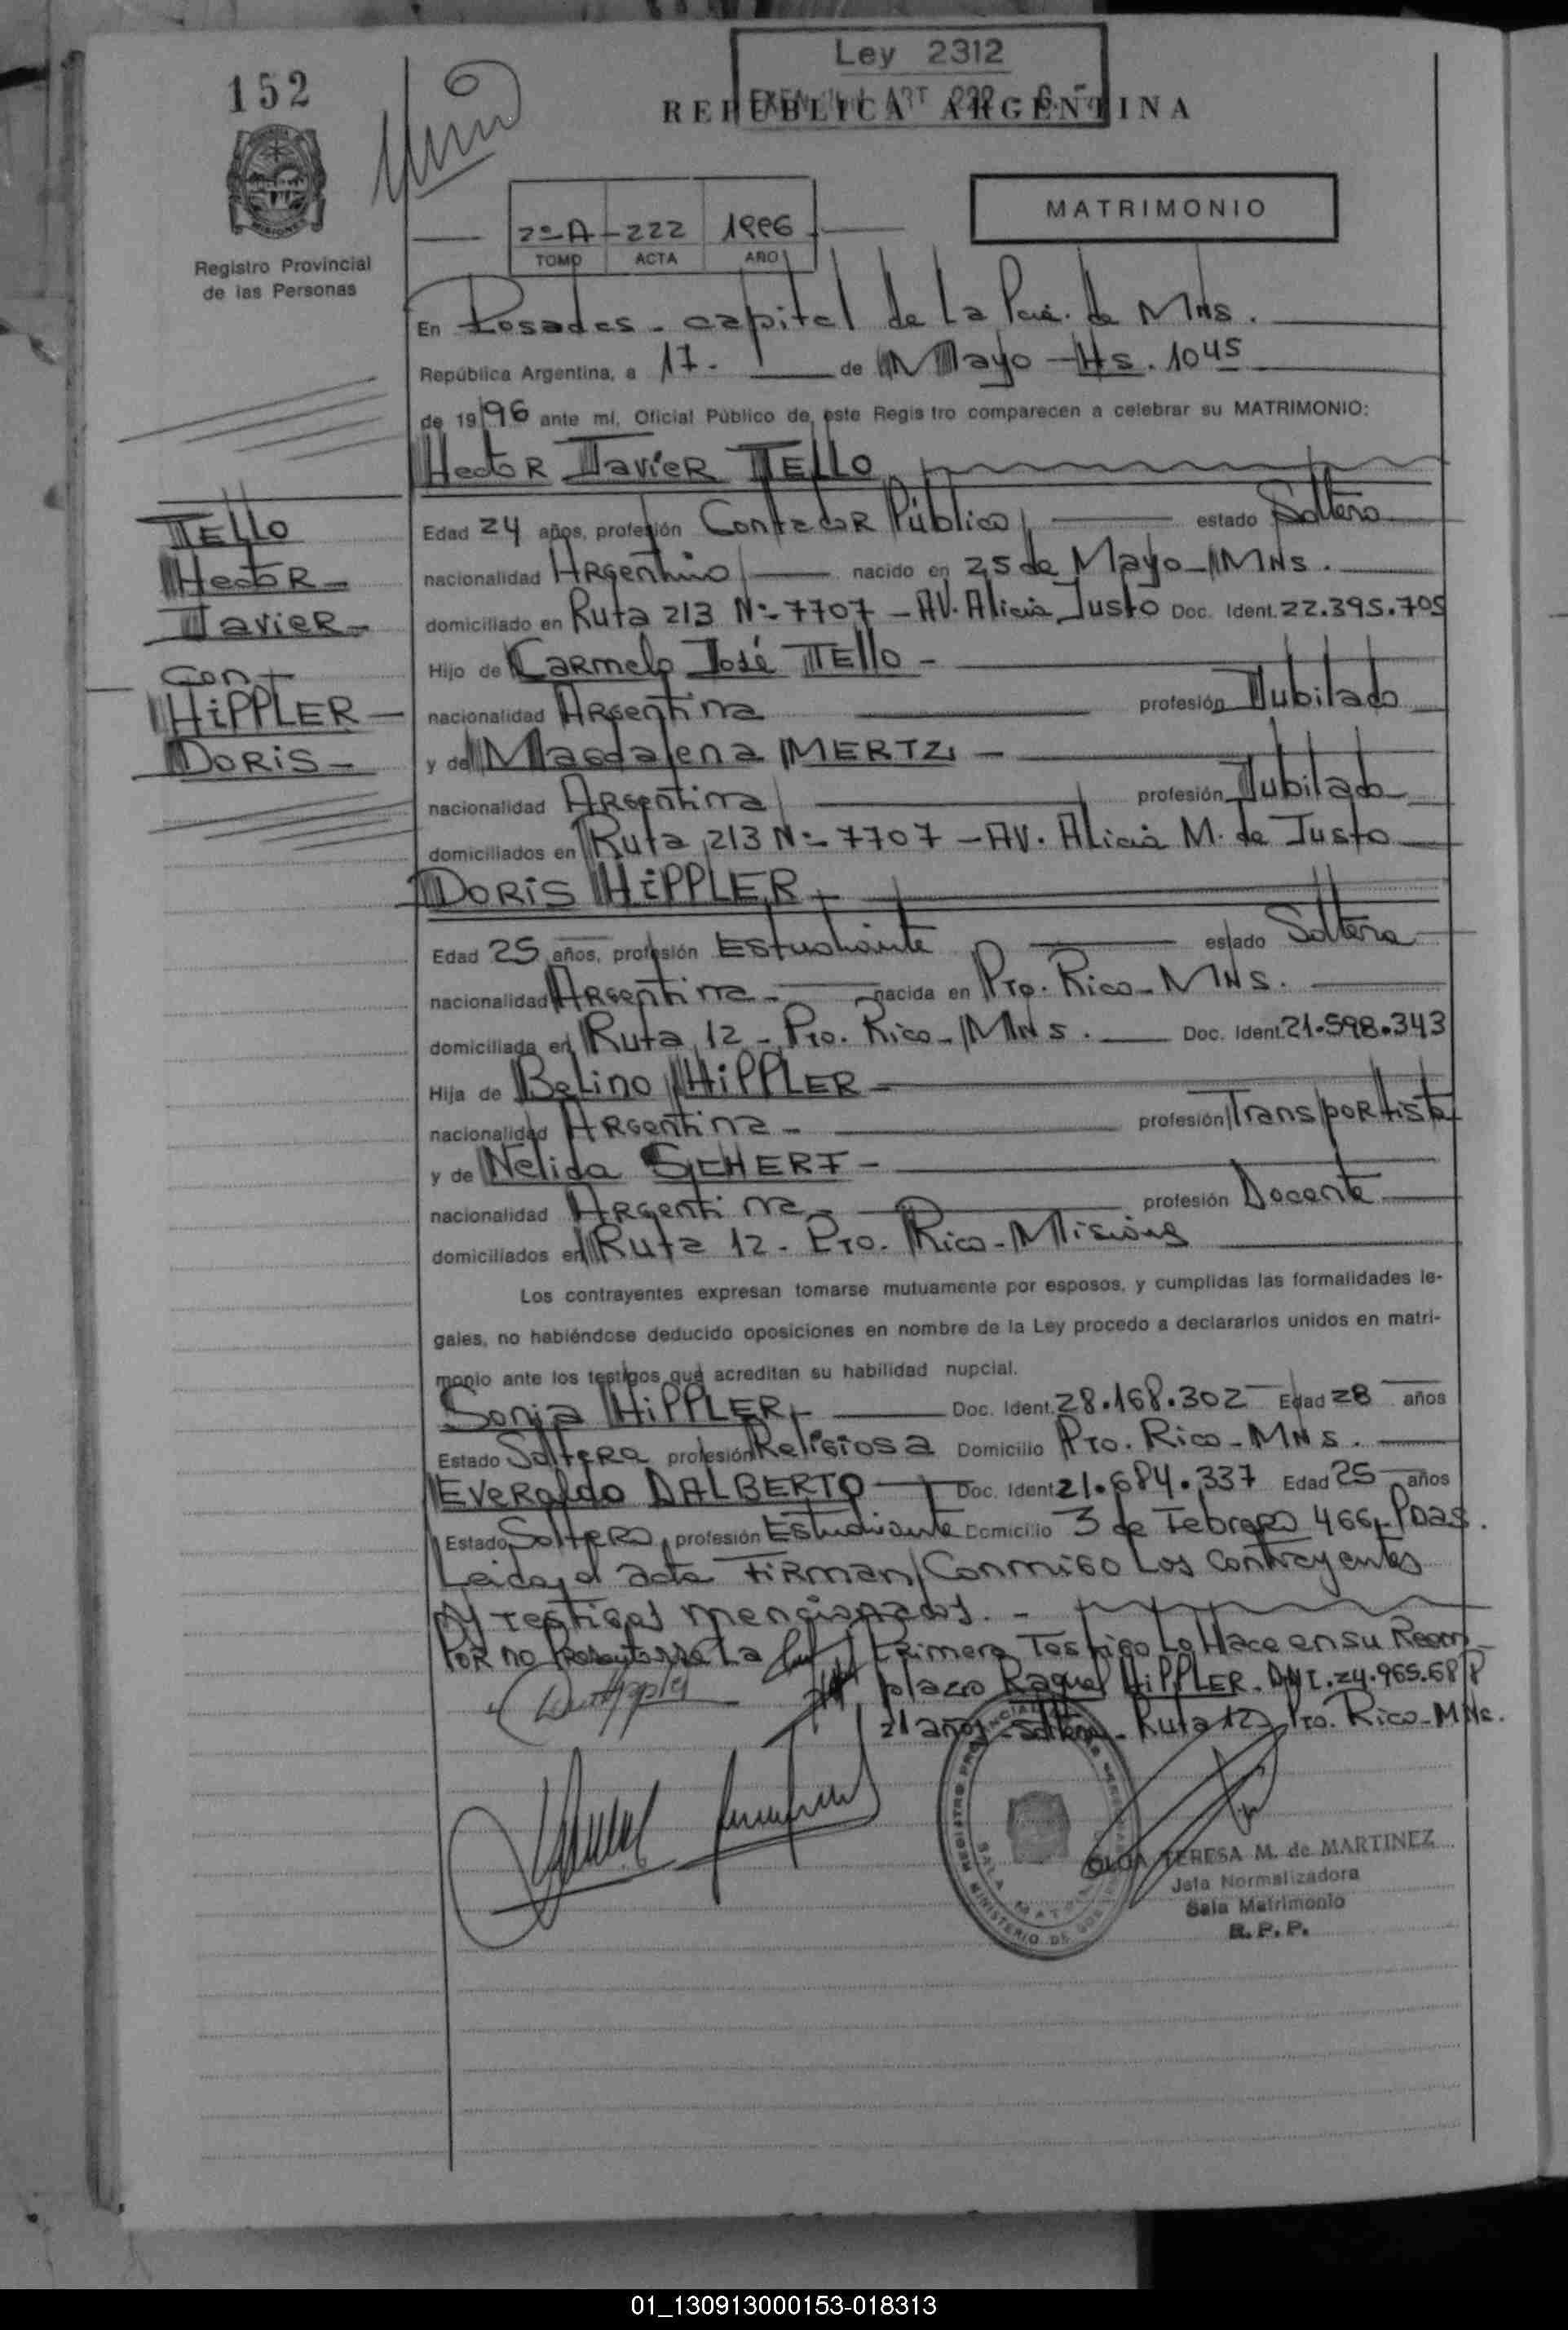 Ley 2312
152
REPUBLICA ARGENTINA
MATRIMONIO
2º A - 222 1996
TOMO ACTA AÑO
Registro Provincial
de las Personas
En Posadas - capital de La Pcia. de MNS.
República Argentina, a 17 - de Mayo - Hs. 10 45
de 19 96 ante mí, Oficial Público de este Registro comparecen a celebrar su MATRIMONIO:
Hector Javier TELLO
TELLO
Hector -
Javier -
con -
HIPPLER -
DORIS -
Edad 24 años, profesión Contador Público estado Soltero
nacionalidad Argentino nacido en 25 de Mayo - MNS.
domiciliado en Ruta 213 Nº 7707 - AV. Alicia Justo Doc. Ident. 22.395.705
Hijo de Carmelo José TELLO -
nacionalidad Argentina profesión Jubilado
y de Magdalena MERTZ -
nacionalidad Argentina profesión Jubilado
domiciliados en Ruta 213 Nº 7707 - AV. Alicia M. de Justo
DORIS HIPPLER -
Edad 25 años, profesión Estudiante estado Soltera
nacionalidad Argentina - nacida en Pto. Rico - MNS.
domiciliada en Ruta 12 - Pto. Rico - MNS. Doc. Ident. 21.598.343
Hija de Belino HIPPLER -
nacionalidad Argentina - profesión Transportista
y de Nelida -
nacionalidad Argentina - profesión Docente
domiciliados en Ruta 12 - Pto. Rico - Misiones
Los contrayentes expresan tomarse mutuamente por esposos, y cumplidas las formalidades le-
gales, no habiéndose deducido oposiciones en nombre de la Ley procedo a declararlos unidos en matri-
monio ante los testigos que acreditan su habilidad nupcial.
Sonia HIPPLER - Doc. Ident. 28.168.302 Edad 28 años
Estado Soltera profesión Religiosa Domicilio Pto. Rico - MNS.
Everaldo DALBERTO Doc. Ident. 21.684.337 Edad 25 años
Estado Soltero profesión Estudiante Domicilio 3 de Febrero 466 - Pdas.
Leida el acta Firman Conmigo Los Contrayentes
y testigos mencionados. -
Por no Presentarse La Primera Testigo Lo Hace en su Reem-
plazo Raquel HIPPLER - DNI. 24.965.68
21 años - soltera - Ruta 12 Pto. Rico - MNS.
OLGA TERESA M. de MARTINEZ
Jefa Normalizadora
Sala Matrimonio
R. P. P.
01_130913000153-018313